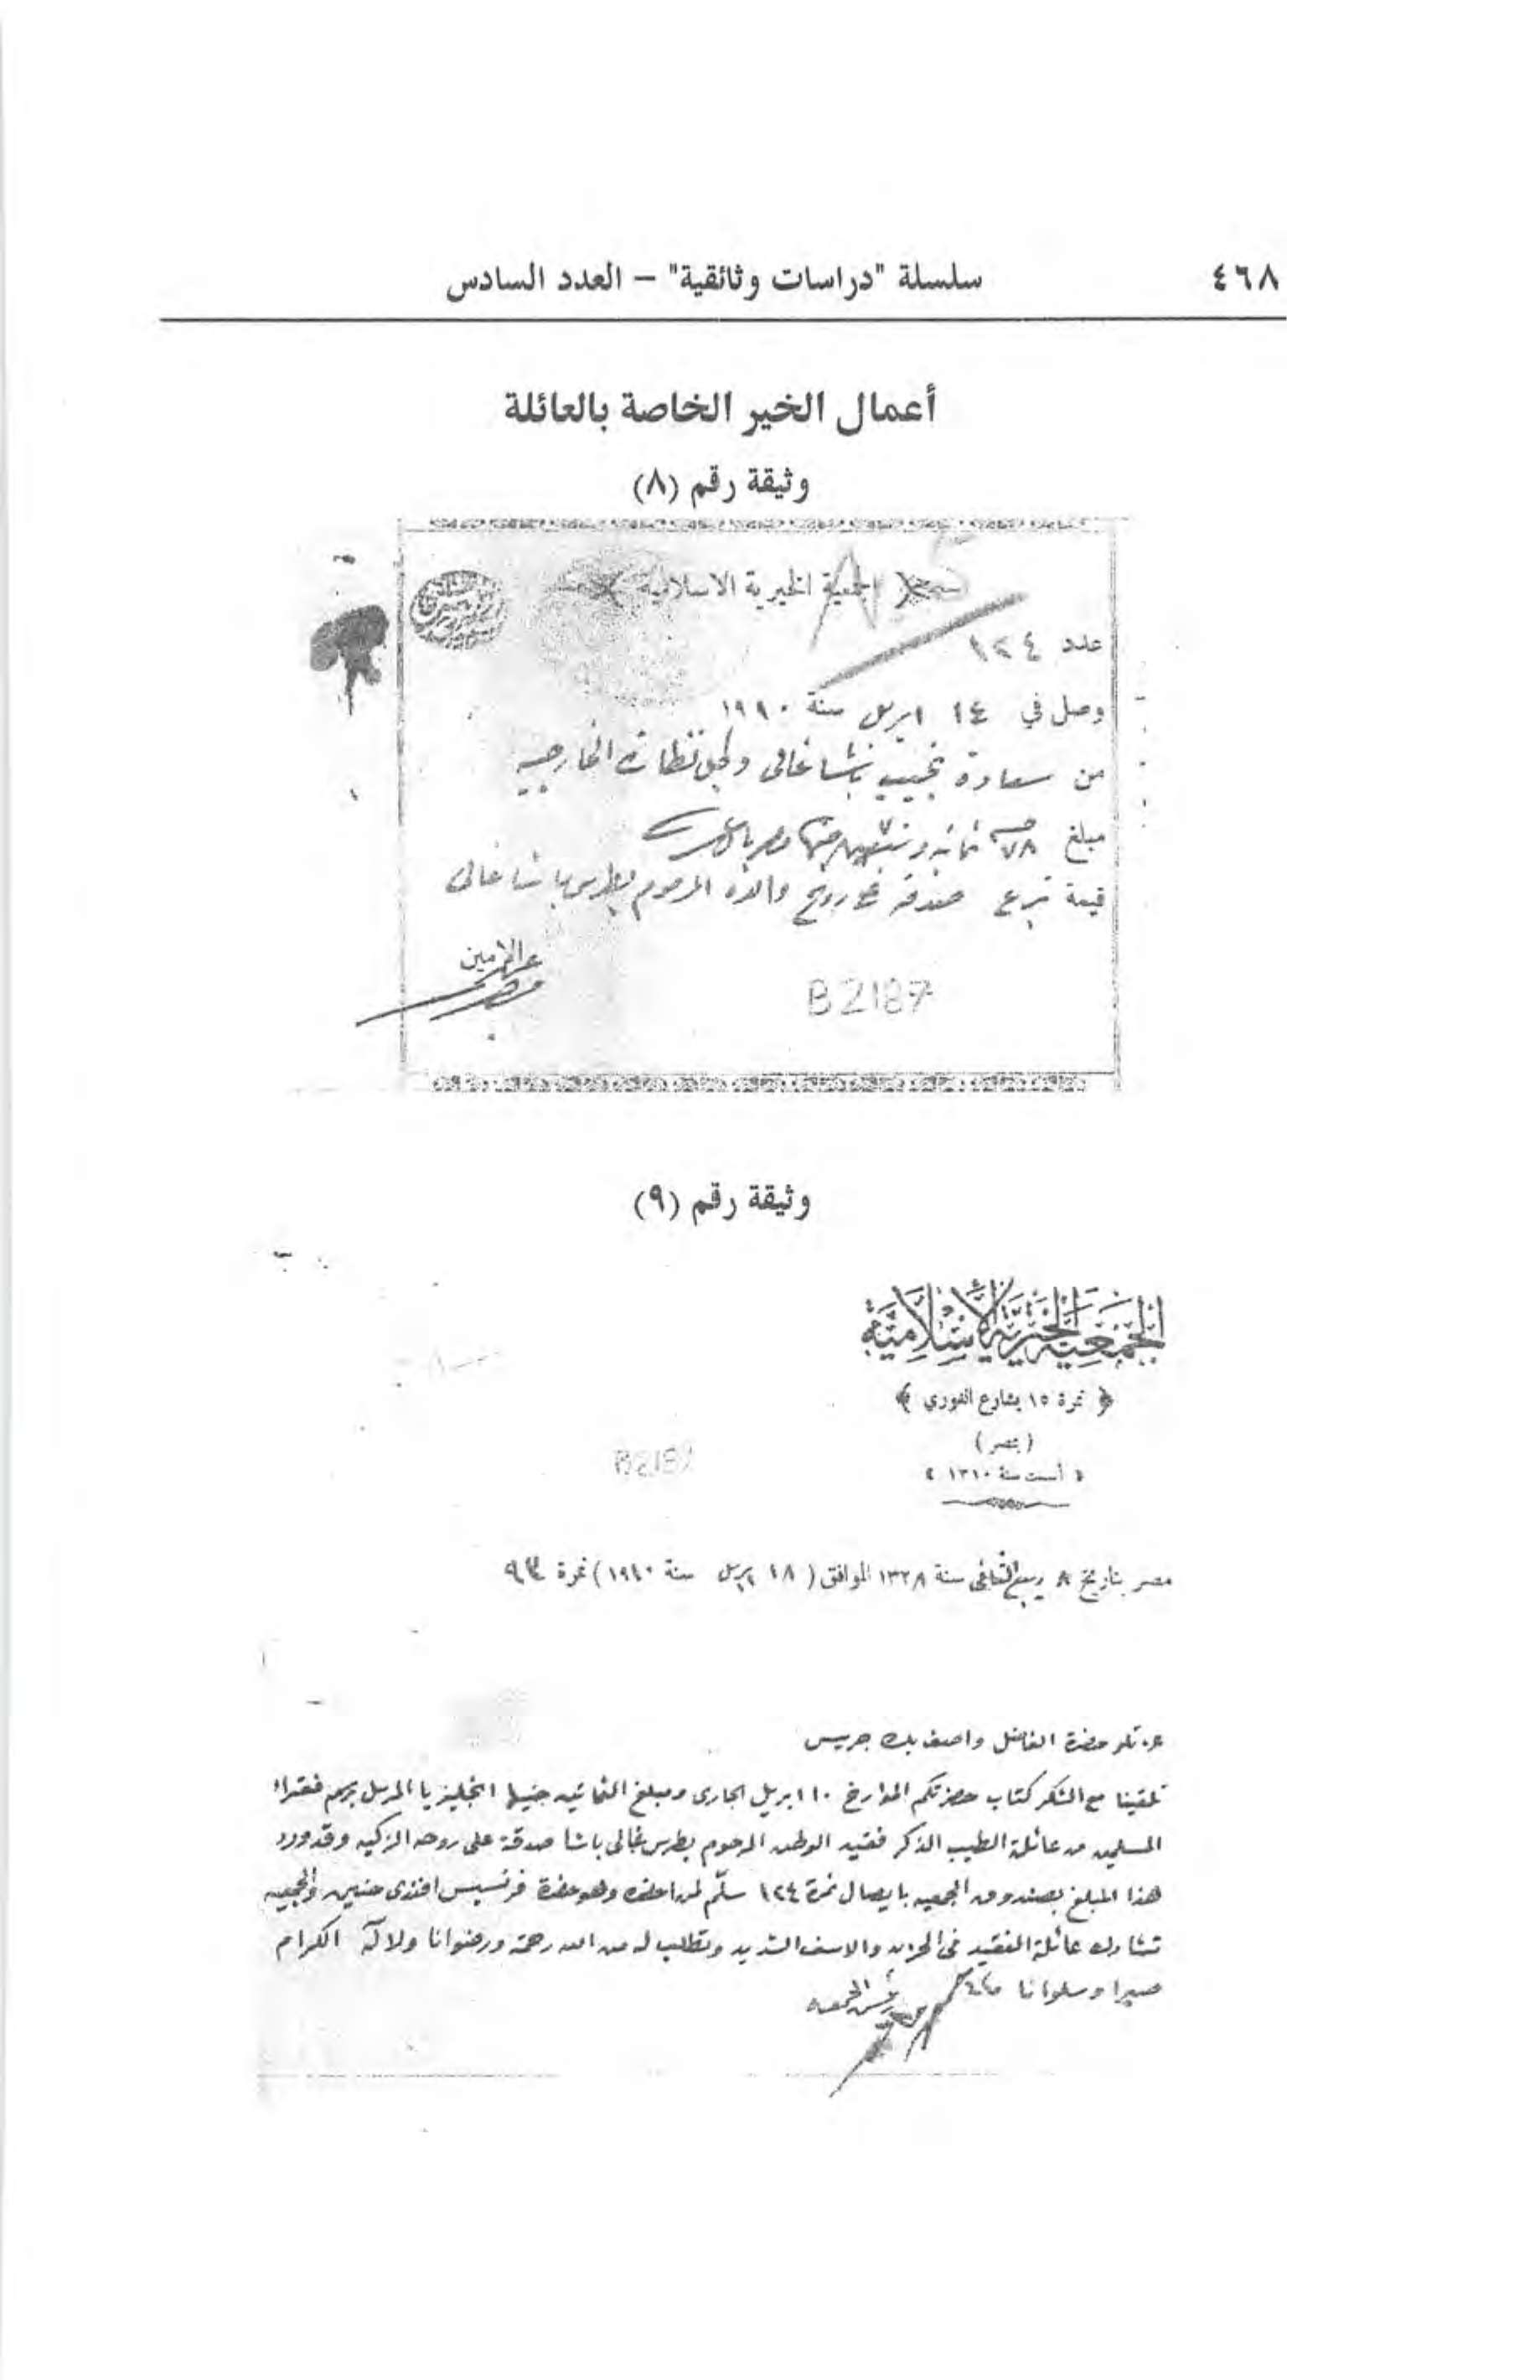 ٤٦٨
سلسلة "دراسات وثائقية" – العدد السادس
أعمال الخير الخاصة بالعائلة
وثيقة رقم (٨)
الجمعية الخيرية الاسلامية
عدد ١٢٤
وصل في ١٤ ابريل سنة ١٩١٠
من سعادة نجيب باشا غالى وكيل نظارة الخارجيه
مبلغ ٧٨
قيمة تبرع صدقه عن روح والده المرحوم بطرس باشا غالى
B2187
وثيقة رقم (٩)
الجمعية الخيرية الإسلامية
﴿ نمرة ١٥ بشارع الغوري ﴾
(بمصر)
أسست سنة ١٣١٠
B2187
مصر بتاريخ ٨ ربيع الثانى سنة ١٣٢٨ الموافق ( ١٨ ابريل سنة ١٩١٠) نمرة ٩٣
حضرة الفاضل واصف بك جريس
تلقينا مع الشكر كتاب حضرتكم المؤرخ ١٠ ابريل الجارى ومبلغ الثمانيه جنيها انجليزيا المرسل برسم فقراء
المسلمين من عائلة الطيب الذكر فقيد الوطن المرحوم بطرس غالى باشا صدقة على روحه الزكيه وقد ورد
هذا المبلغ بصندوق الجمعيه بايصال نمرة ١٢٤ سلّم لمن احضره وهو حضرة فرنسيس افندى حنين والجمعيه
تشارك عائلة الفقيد فى الحزن والاسف الشديد وتطلب له من الله رحمة ورضوانا ولآله الكرام
صبرا وسلوانا
رئيس الجمعيه